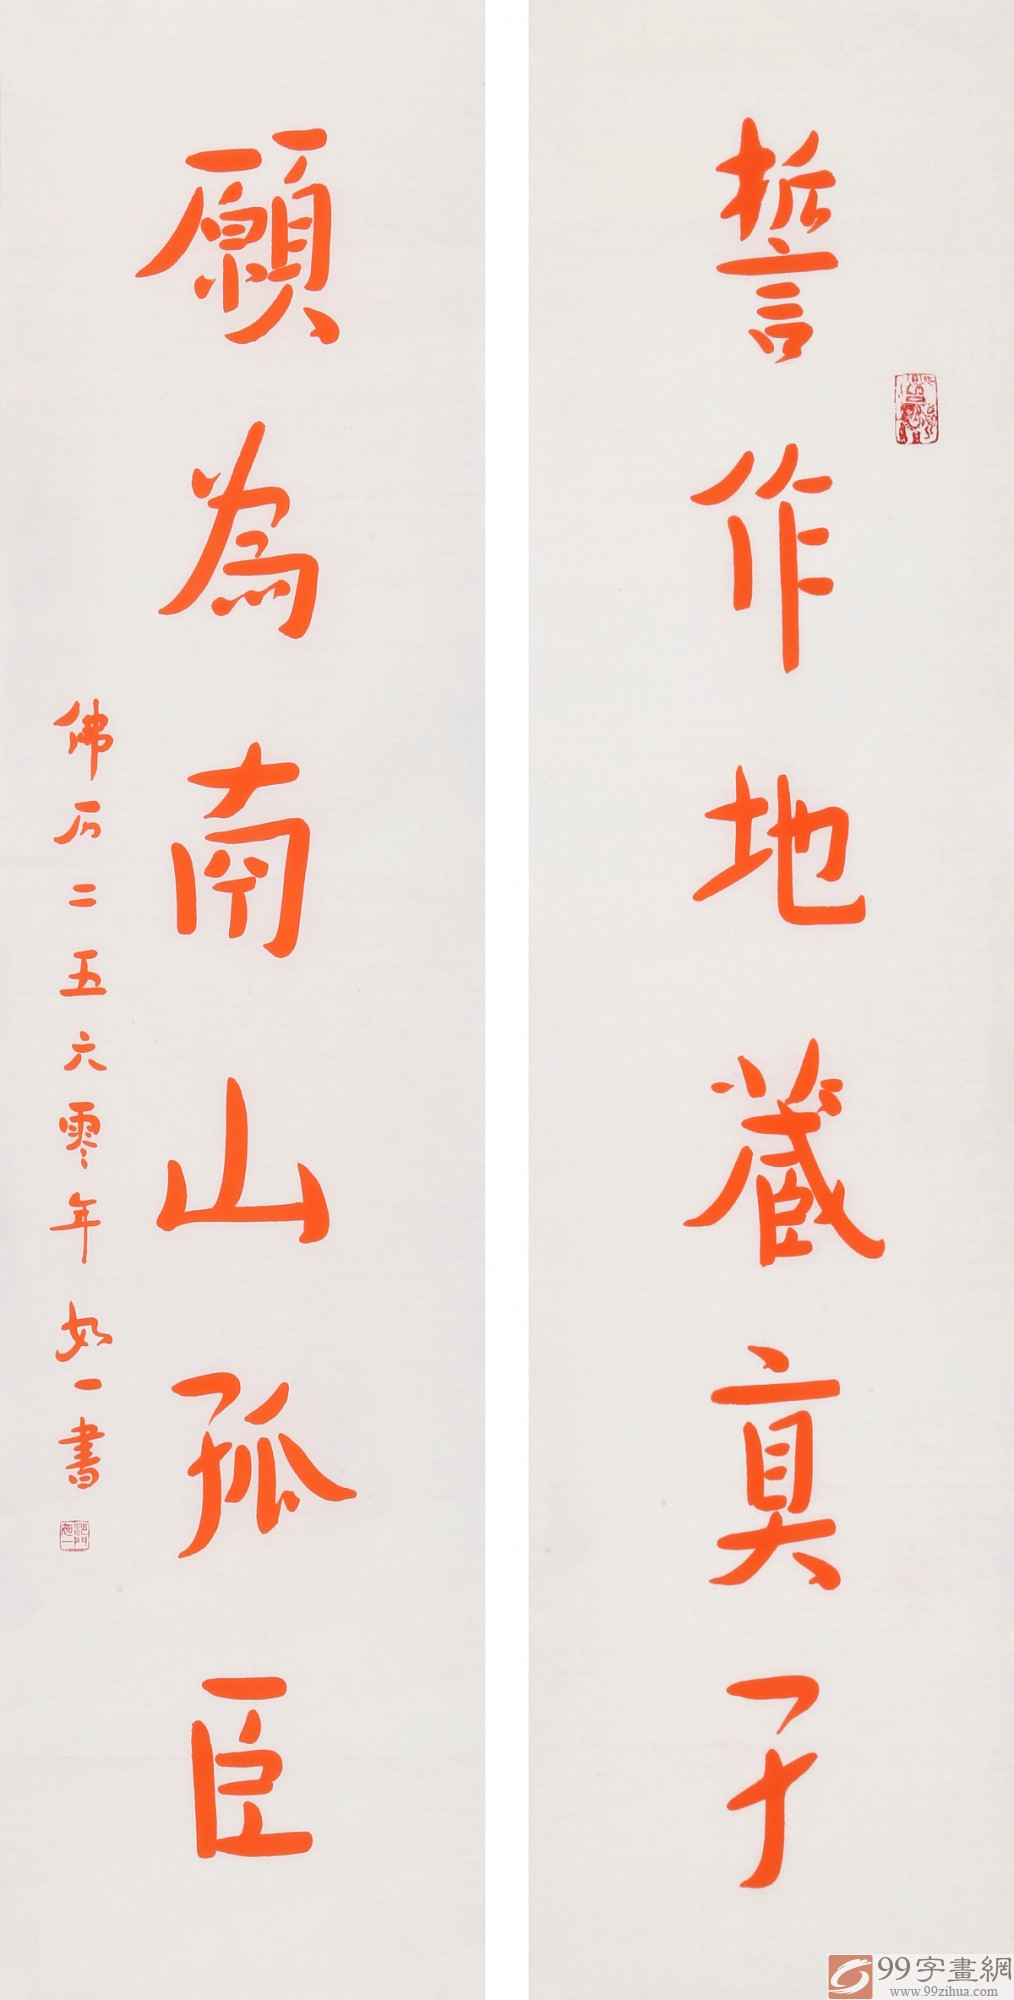 誓作地藏真子
願為南山孤臣
佛历二五六零年如一書
99字畫網
www.99zihua.com